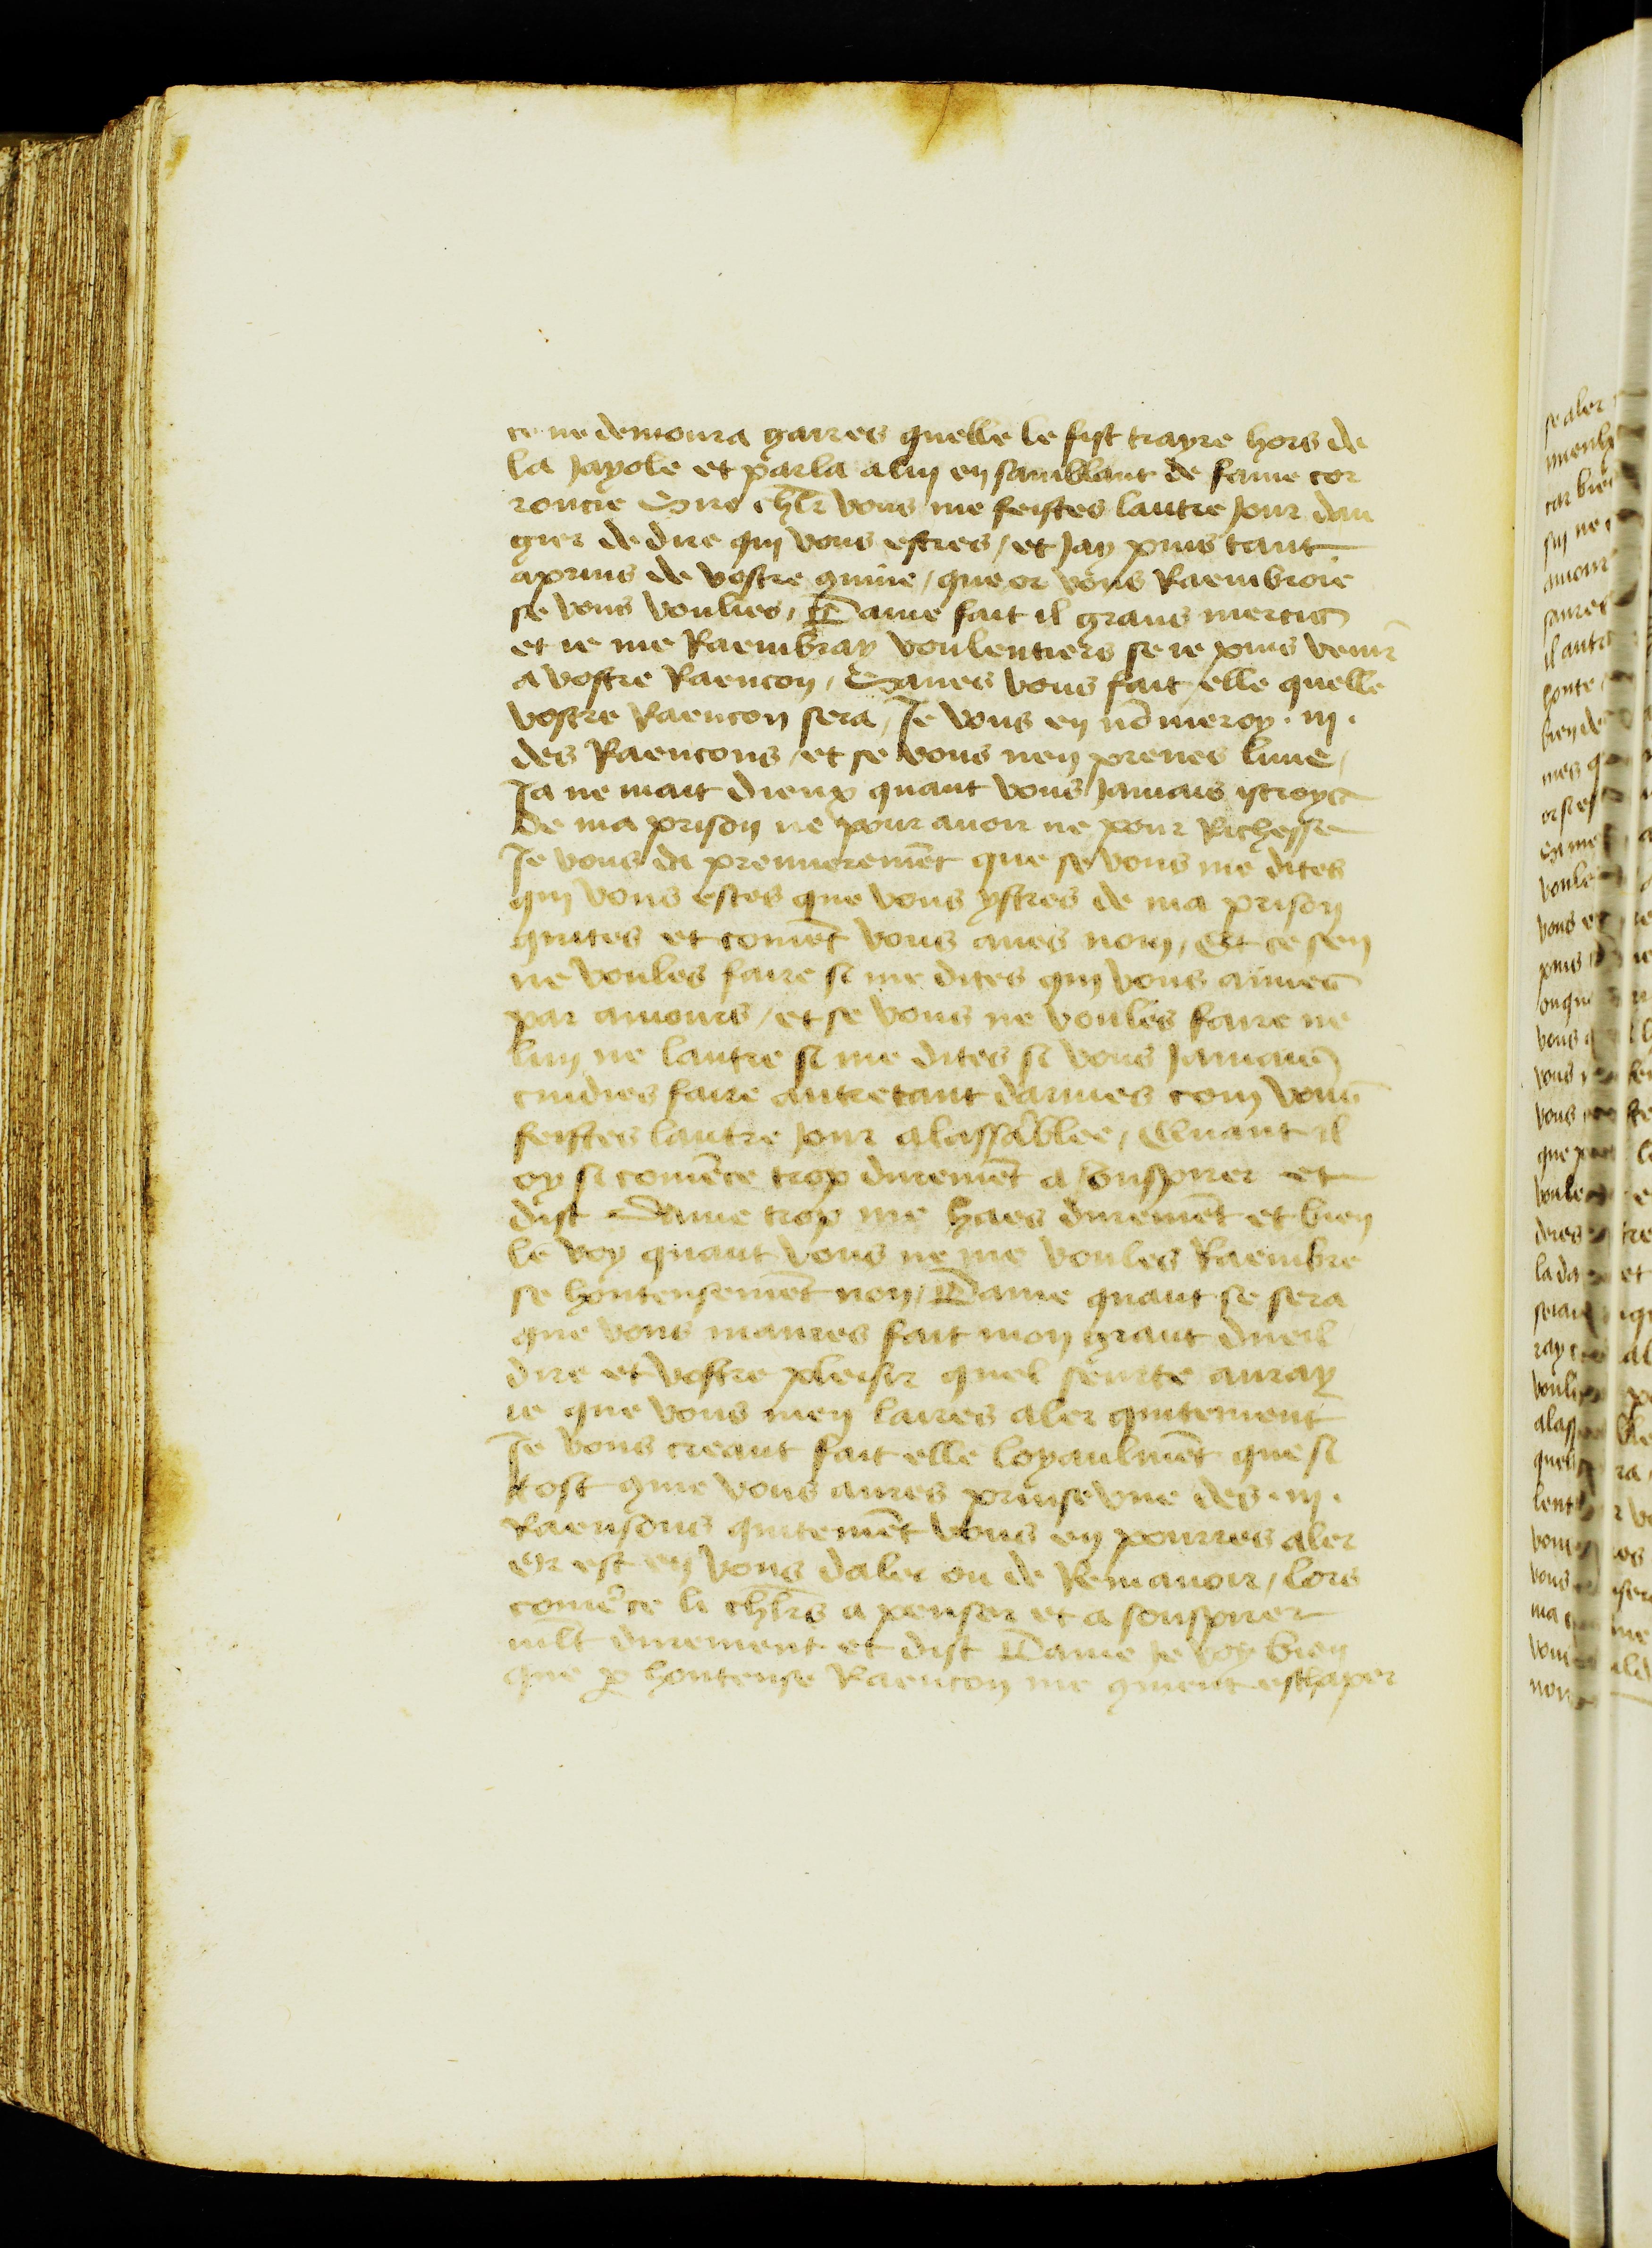 ce ne demoura gaires quelle le fist trayre hors de
la Jayole et parla a luy en samblant de fame cor
roucie Sire chlr vous me feistes lautre Jour dan
gier de dire qui vous estres / et Jay puis tant
aprins de vostre quuie / que or vous Raembroie
se vous voulies / Dame fait il grans mercis
et ie me Raembray voulentiers se ie puis venir
a vostre Raencon / Saues vous fait elle quelle
vostre Raencon sera / Je vous en nōmeroy . iij .
des Raencons / et se vous nen prenes lune /
Ja ne mait dieux quant vous Jamais istroys
de ma prison ne pour auoir ne pour Richesse
Je vous di premieremēt que se vous me dites
qui vous estes que vous ystres de ma prison
quites et comēt vous aues nom / Et ce sen
ne voules faire si me dites qui vous aimes
par amours / et se vous ne voules faire ne
lun ne lautre si me dites si vous Jamais
cuidies faire autretant darmes com vous
feistes lautre Jour a lassāblee / Quant il
oy si comēce trop duremēt a souspirer et
dist Dame trop me haes duremēt et bien
le voy quant vous ne me voules Raembre
se honteusemēt non / Dame quant se sera
que vous maures fait mon grant dueil
dire et vostre plaisir quel seurte auray
ie que vous men laires aler quitement
Je vous creant fait elle loyaulmēt que si
tost que vous aures prinse vne des . iij .
Raensons quitemēt vous en pourres aler
Or est en vous daler ou de Remanoir / lors
comēce li chlrs a penser et a souspirer
mlt durement et dist Dame Je voy bien
que p̱ honteuse Raencon me quient eschaper